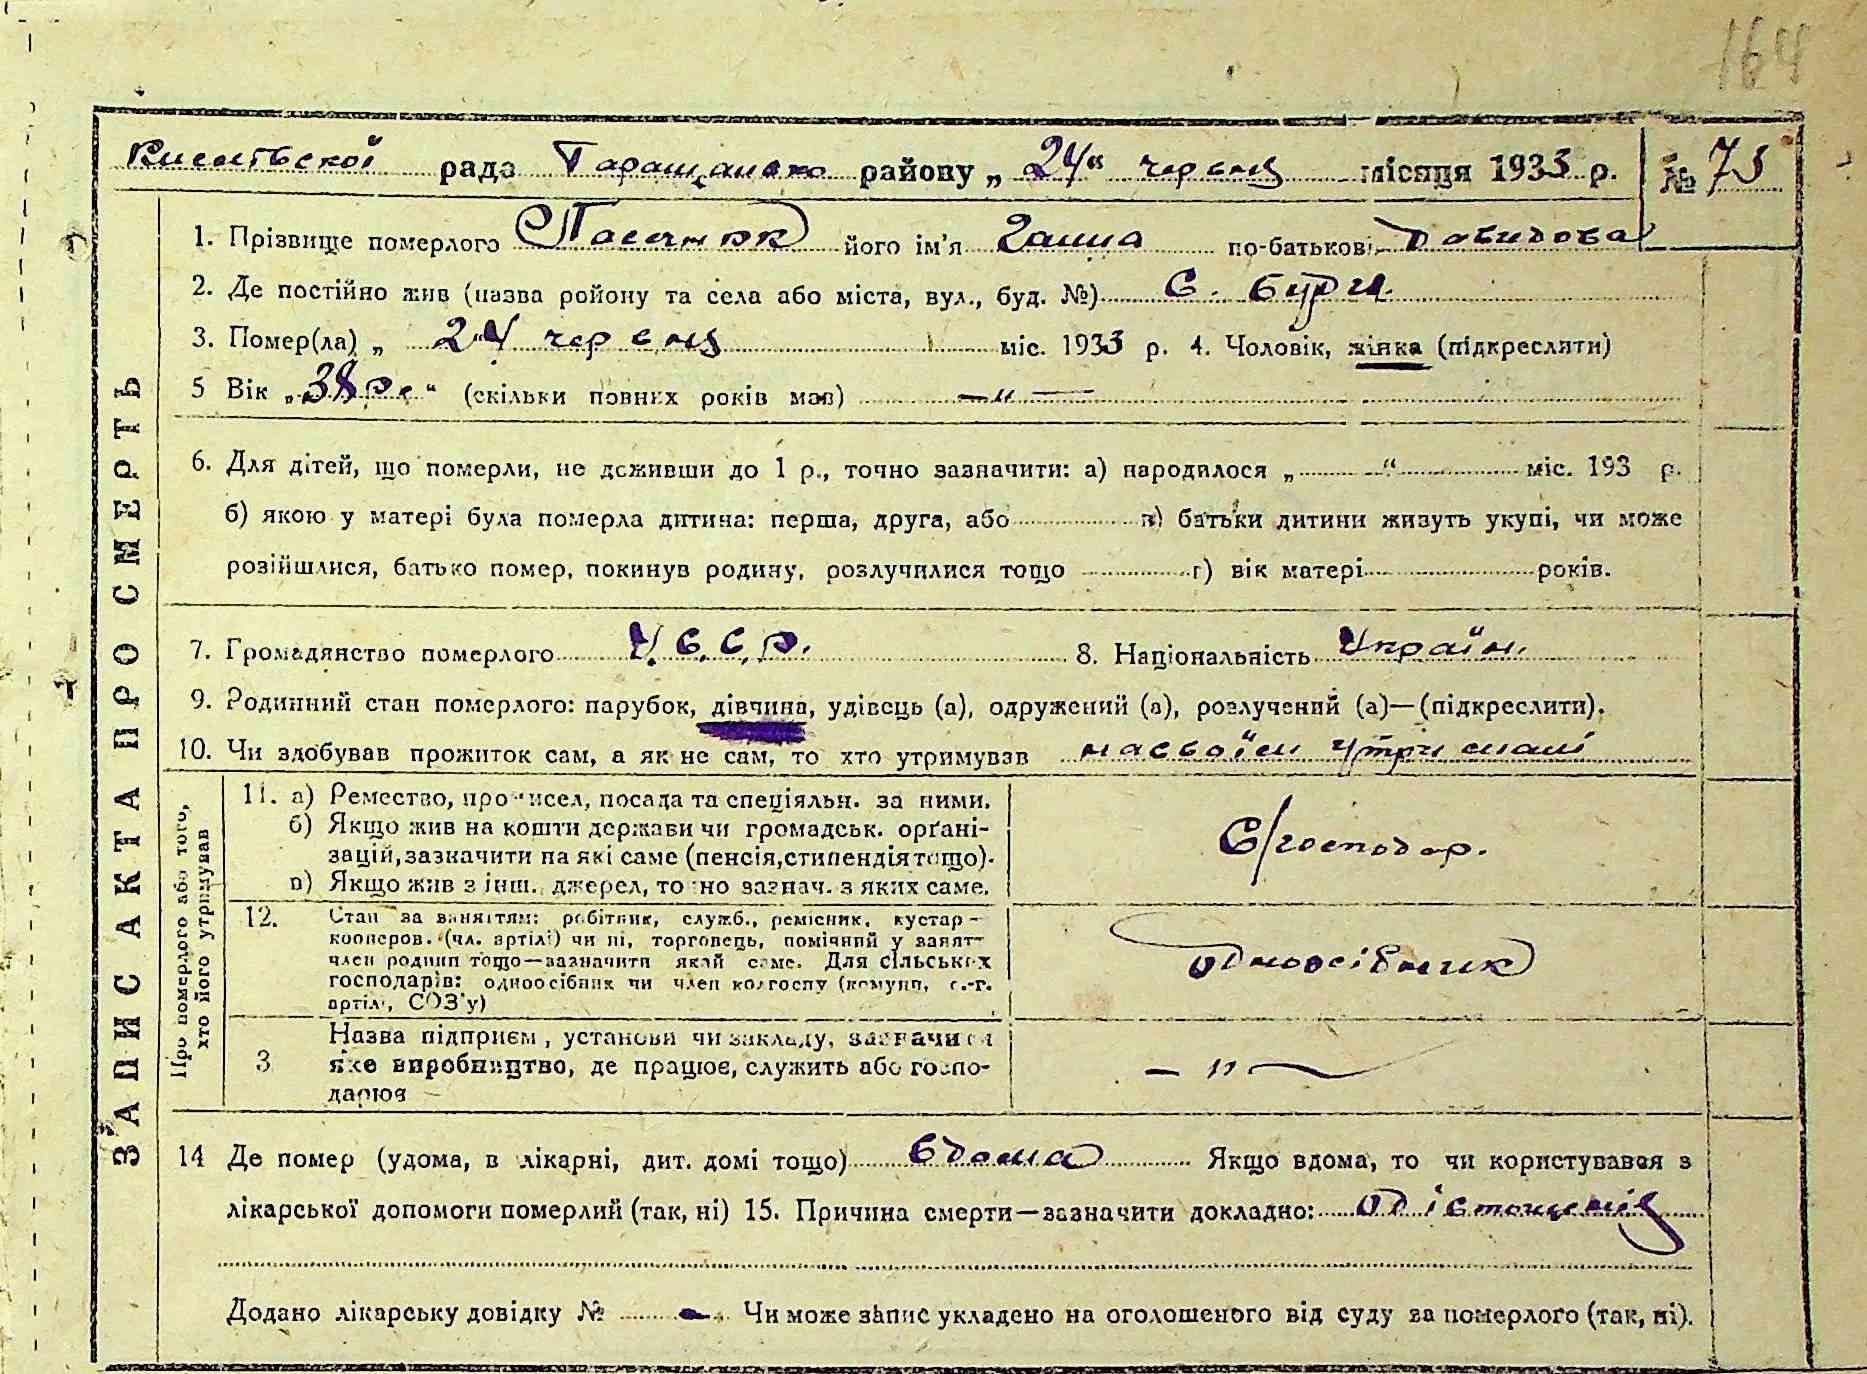 164
рада Таращансько району „24“ червня місяця 1933 р. № 73
1. Прізвище померлого його ім'я Ганна по-батькові Давидова
2. Де постійно жив (назва ройону та села або міста, вул., буд. №) С. Бурти
3. Помер(ла) „ 24 червня міс. 1933 р. 4. Чоловік, жінка (підкреслити)
5 Вік „38 р.“ (скільки повних років мав) —„—
6. Для дітей, що померли, не доживши до 1 р., точно зазначити: а) народилося „ “ міс. 193 р.
б) якою у матері була померла дитина: перша, друга, або в) батьки дитини живуть укупі, чи може
розійшлися, батько помер, покинув родину, розлучилися тощо г) вік матері років.
7. Громадянство померлого У.С.С.Р. 8. Національність Україн.
9. Родинний стан померлого: парубок, дівчина, удівець (а), одружений (а), розлучений (а)—(підкреслити).
10. Чи здобував прожиток сам, а як не сам, то хто утримував на своїм утриманні
ЗАПИС АКТА ПРО СМЕРТЬ
Про померлого або того, хто його утримував
11. а) Ремество, промисел, посада та спеціяльн. за ними.
б) Якщо жив на кошти держави чи громадськ. орґані-
зацій, зазначити на які саме (пенсія, стипендія тощо).
в) Якщо жив з інш. джерел, точно зазнач. з яких саме.
С/господар.
12. Стан за заняттям: робітник, служб., ремісник, кустар-
кооперов. (чл. артілі) чи ні, торговець, помічний у занят-
член родини тощо—зазначити який саме. Для сільських
господарів: одноосібник чи член колгоспу (комуни, с.-г.
артілі, СОЗ'у)
одноосібник
3 Назва підприєм, установи чи закладу, зазначити
яке виробництво, де працює, служить або госпо-
дарює
— „ —
14 Де помер (удома, в лікарні, дит. домі тощо) вдома Якщо вдома, то чи користувався з
лікарської допомоги померлий (так, ні) 15. Причина смерти—зазначити докладно: од істощенія
Додано лікарську довідку № — Чи може запис укладено на оголошеного від суду за померлого (так, ні).